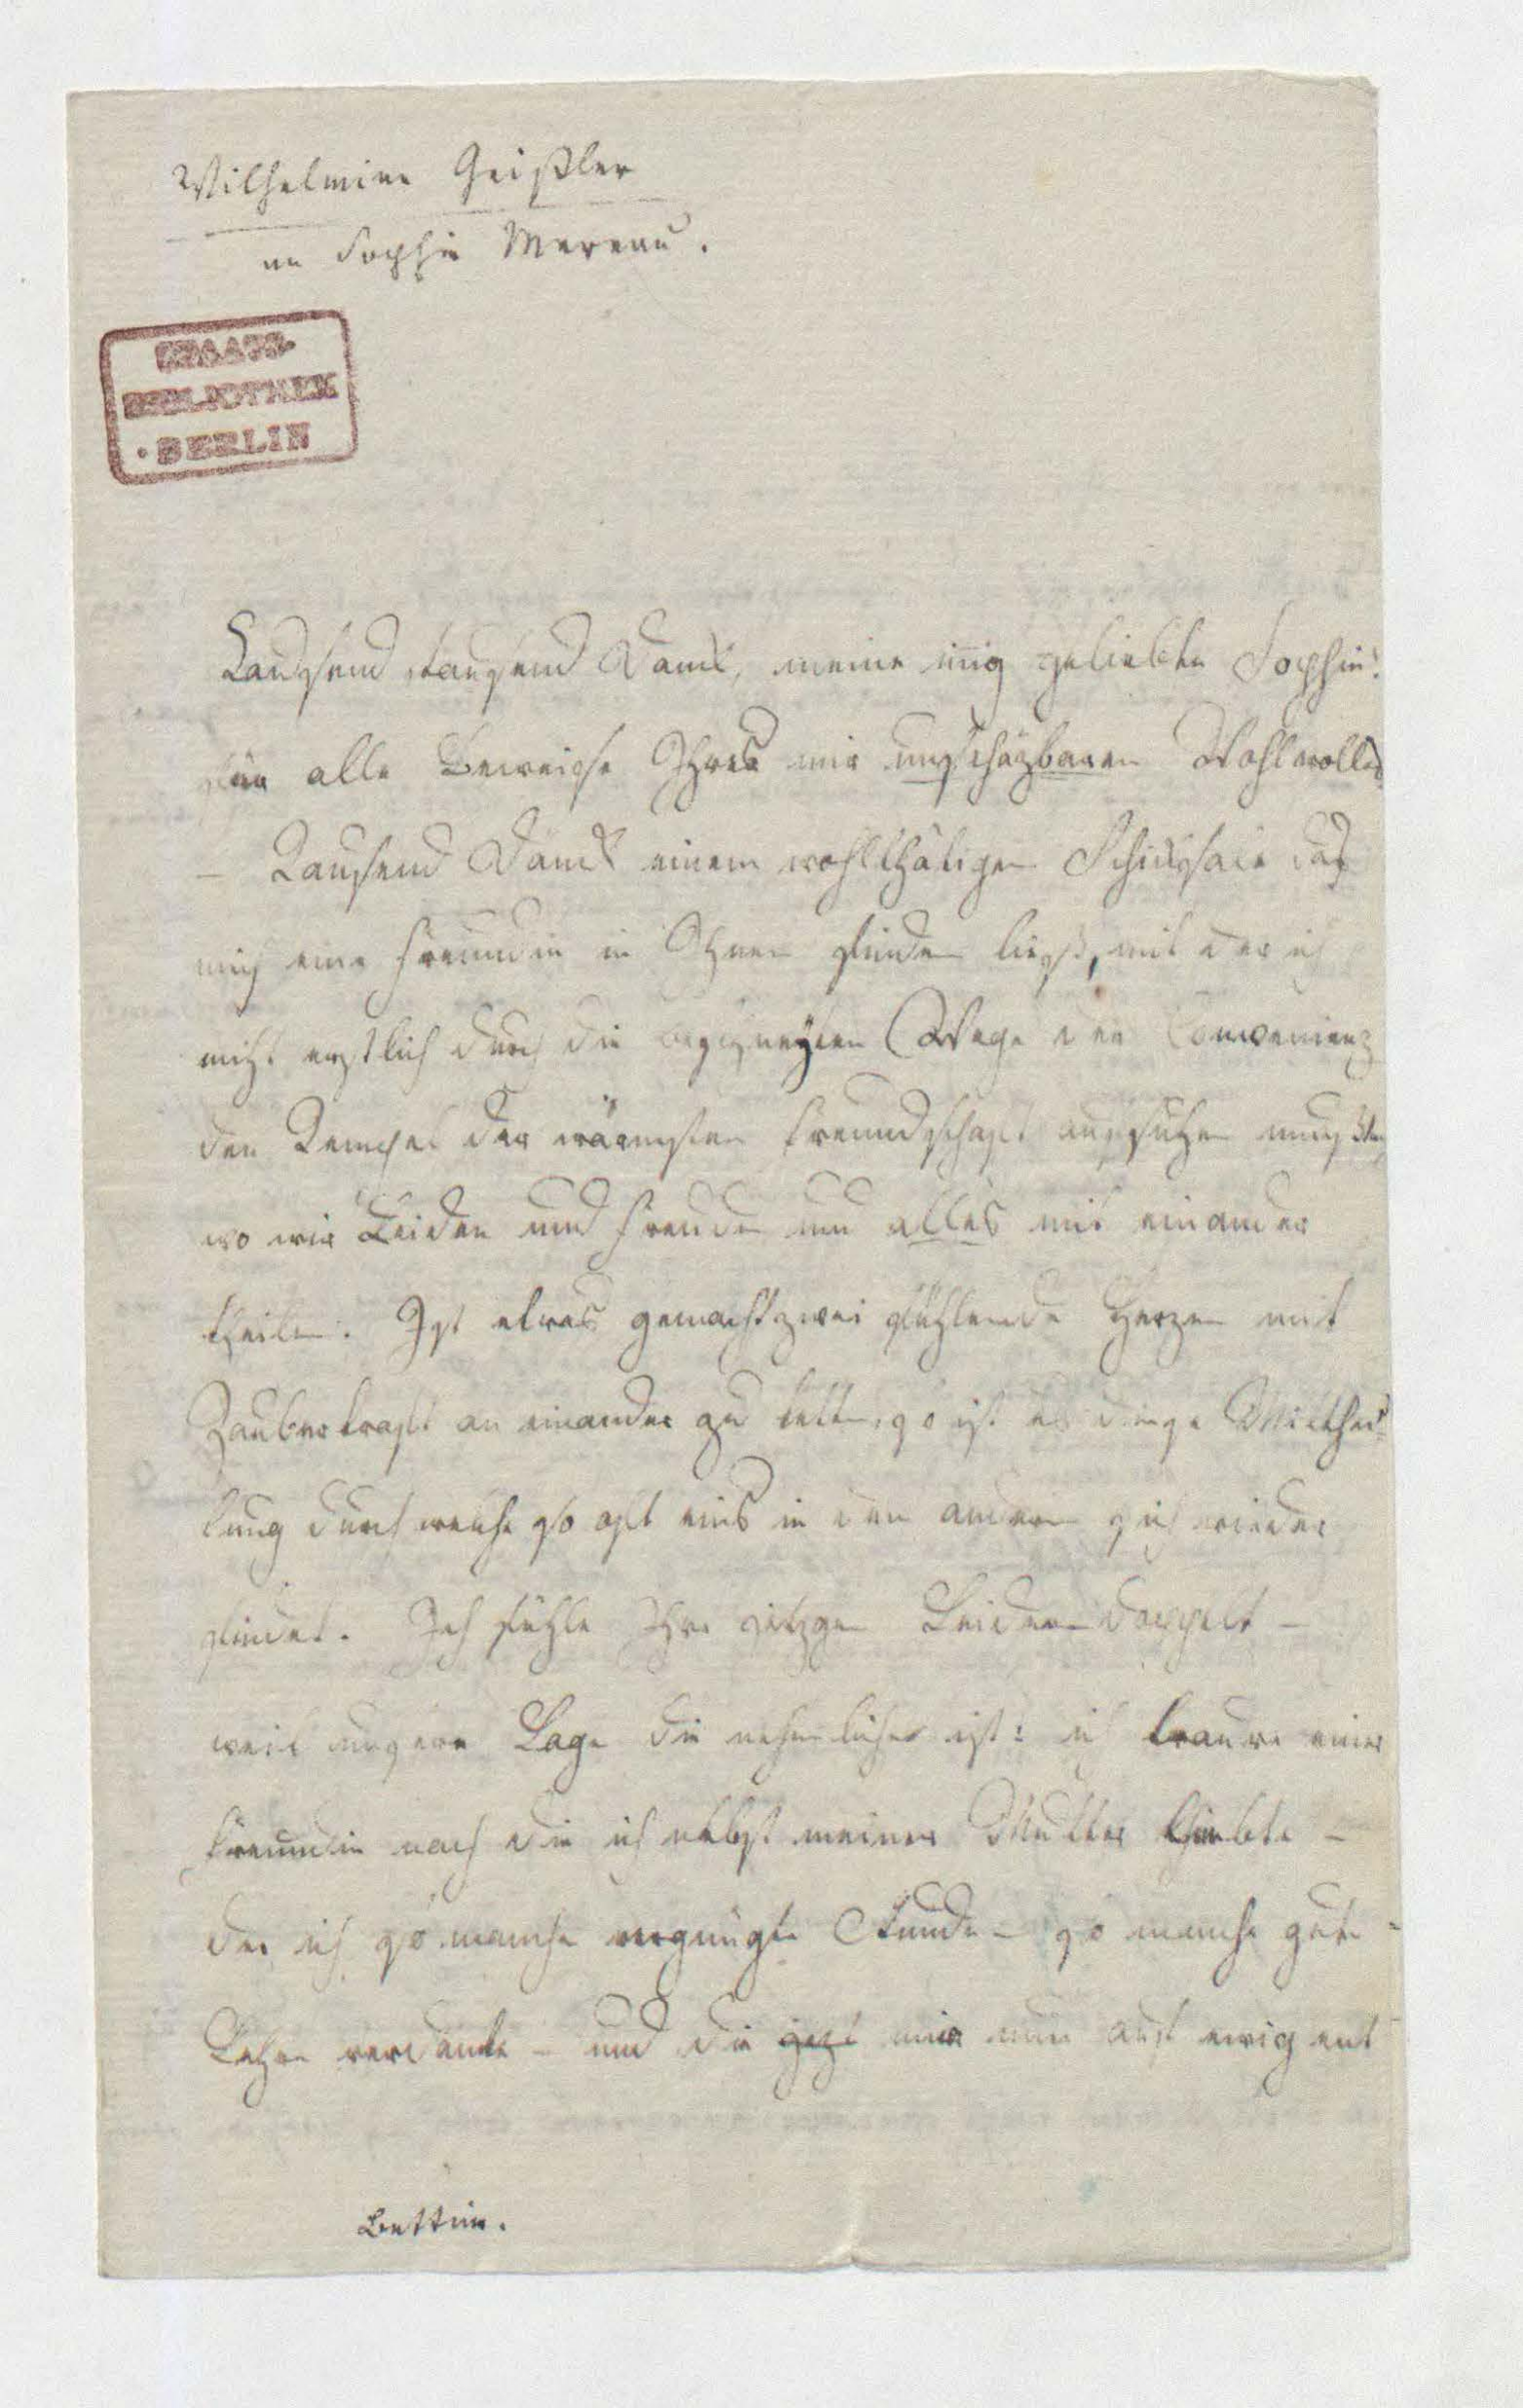 Wilhelmine Geißler
an Sophie Mereau.
STAATS-
BIBLIOTHEK
· BERLIN
Tausend tausend Danck, meine inig geliebte Sophie!
für alle Beweiße Ihres mir unschäzbaren Wohlwollens
– Tausend Danck einem wohlthätigen Schicksale das
mich eine Freundin in Ihnen finden ließ, mit der ich
nicht erstlich durch die Wege der Convenienz
den Tempel der wärmsten Freundschaft aufsuchen mußte,
wo wir Leiden und Freuden und alles mit einander
theilen. Ist etwas gemacht zwei fühlende Herzen mit
Zauberkraft an einander zu ketten, so ist es diese Mitthei-
lung durch welche so oft eins in dem andern sich wieder
findet. Ich fühle Ihre jetzgen Leiden doppelt –
weil unsere Lage die nehmliche ist: ich traure einer
Freundin nach die ich nebst meiner Mutter liebte –
der ich so manche vergnügte Stunde – so manche gute
Lehre verdanke – und die jezt mir nun auf ewig ent
Bettin.